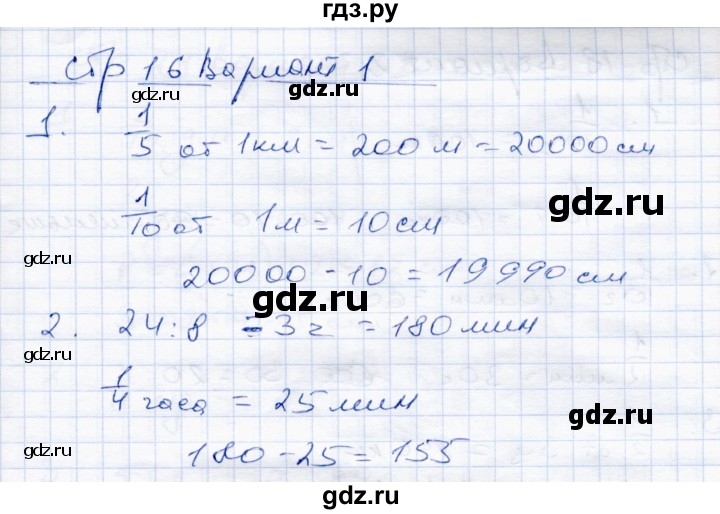 гдз.ру
стр 16 Вариант 1
gdz.ru
gdz.ru
gdz.ru
1. 1/5 от 1км = 200 м = 20000 см
gdz.ru
1/10 от 1м = 10 см
gdz.ru
20000 - 10 = 19990 см
gdz.ru
2. 24 : 8 = 3 г = 180 мин
gdz.ru
1/4 часа = 25 мин
gdz.ru
180 - 25 = 155
gdz.ru
gdz.ru